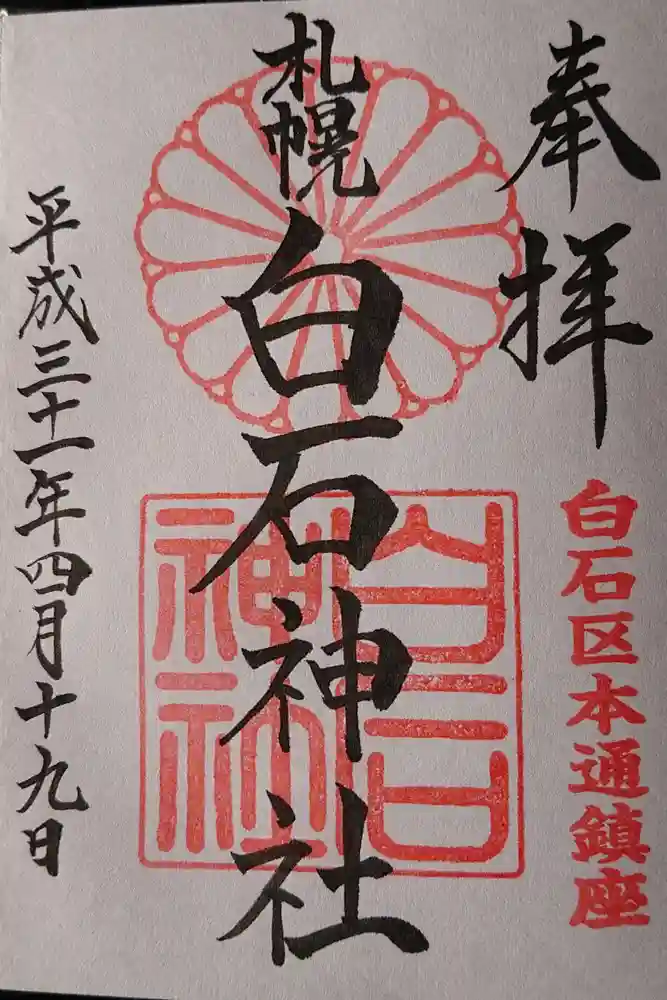 奉拝
白石区本通鎮座
札幌
白石神社
白石
神社
平成三十一年四月十九日